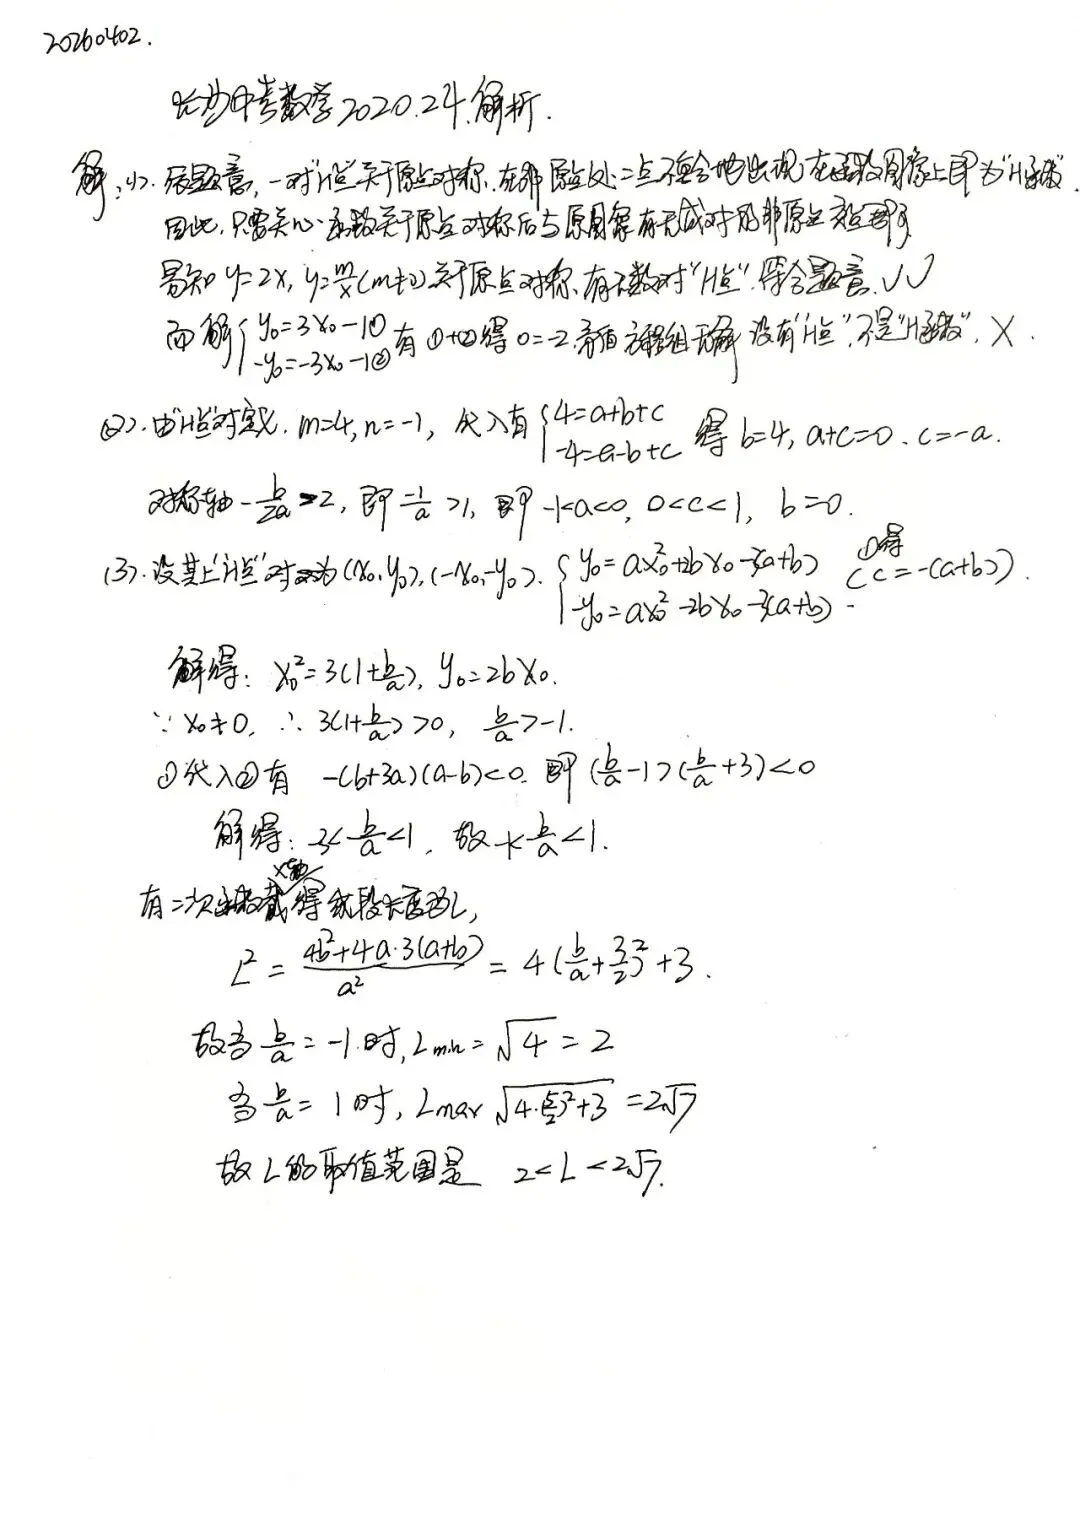 20260402.
长沙中考数学2020.24.解析.
解:(1). 依题意,一对"H点"关于原点对称.在非原点处二点不重合地出现在函数图像上即为"H函数".
因此,只需关心函数关于原点对称后与原图象有无成对的非原点交点即可
易知 y=2x, y=m/x(m≠0)关于原点对称.有无数对"H点".符合题意.√√
而解{y₀=3x₀-1① -y₀=-3x₀-1② 有①+②得0=-2.矛盾 方程组无解 没有"H点".不是"H函数". ×.
(2). 由"H点"对定义. m=4, n=-1, 代入有{4=a+b+c -4=a-b+c 得 b=4, a+c=0. c=-a.
对称轴 -b/2a>2, 即 -1/a>1, 即 -1<a<0, 0<c<1, b=0.
(3). 设其上"H点"对为(x₀,y₀),(-x₀,-y₀). {y₀=ax₀²+2bx₀-3(a+b) -y₀=ax₀²-2bx₀-3(a+b). (①得 c=-(a+b)).
解得: x₀²=3(1+b/a), y₀=2bx₀.
∵x₀≠0, ∴3(1+b/a)>0, b/a>-1.
①代入②有 -(b+3a)(a-b)<0. 即(b/a-1)(b/a+3)<0
解得: -3<b/a<1. 故-1<b/a<1.
有二次函数截x轴得线段长度为L,
L²=(4b²+4a·3(a+b))/a²=4(b/a+3/2)²+3.
故当b/a=-1时, Lmin=√4=2
当b/a=1时, Lmax √(4·(5/2)²+3)=2√7
故L的取值范围是 2<L<2√7.